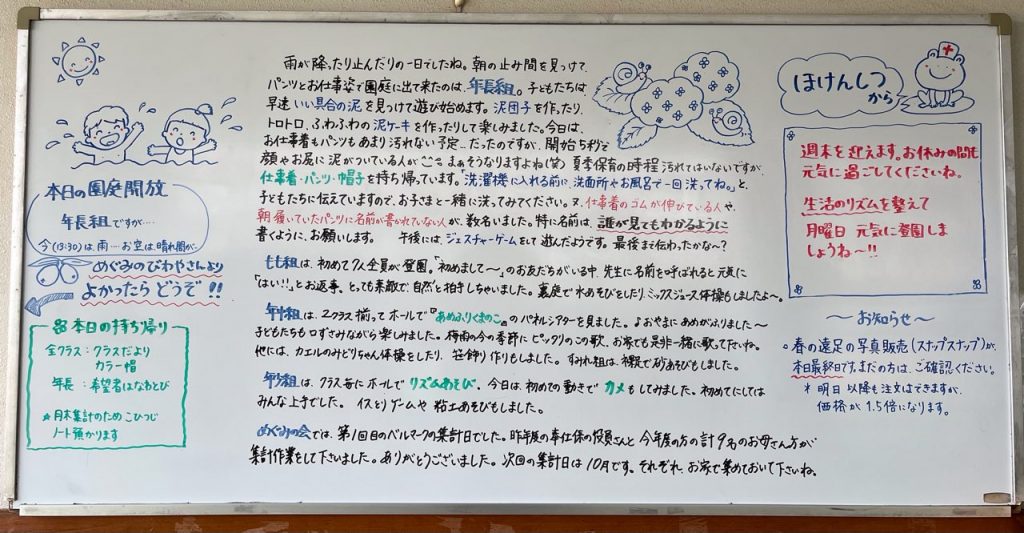 本日の園庭開放
年長組ですが…
今(13:30)は、雨…お空は、晴れ間が…
めぐみのびわやさんより
よかったら どうぞ!!
本日の持ち帰り
全クラス:クラスだより
カラー帽
年長:希望者はなわとび
*月末集計のため こひつじ
ノート預かります
雨が降ったり止んだりの一日でしたね。朝の止み間を見つけて、
パンツとお仕事姿で園庭に出て来たのは、年長組。子どもたちは、
早速いい具合の泥を見つけて遊び始めます。泥団子を作ったり、
トロトロ、ふわふわの泥ケーキを作ったりして楽しみました。今日は、
お仕事着もパンツもあまり汚れない予定…だったのですが、開始5秒で
顔やお尻に泥がついている人が まぁそうなりますよね(笑) 夏季保育の時程汚れてはいないですが、
仕事着・パンツ・帽子を持ち帰っています。「洗濯機に入れる前に、洗面所やお風呂で一回洗ってね。」と、
子どもたちに伝えていますので、お子さまと一緒に洗ってみてください。又、仕事着のゴムが伸びている人や、
朝履いていたパンツに名前が書かれていない人が、数名いました。特に名前は、誰が見てもわかるように
書くように、お願いします。 午後には、ジェスチャーゲームをして遊んだようです。最後まで伝わったかな〜?
もも組は、初めて7人全員が登園。「初めまして〜」のお友だちがいる中、先生に名前を呼ばれると元気に
「はい!!」とお返事。とっても素敵で、自然と拍手しちゃいました。裏庭で水あそびをしたり、ミックスジュース体操もしましたよ〜。
年中組は、2クラス揃ってホールで『あめふりくまのこ』のパネルシアターを見ました。♪おやまに あめがふりました〜
子どもたちも口ずさみながら楽しみました。梅雨の今の季節に ピッタリのこの歌、お家でも是非一緒に歌って下さいね。
他には、カエルのみどりちゃん体操をしたり、笹飾り作りもしました。すみれ組は、裸足で砂あそびもしました。
年少組は、クラス毎にホールで リズムあそび。今日は、初めての動きで カメもしてみました。初めてにしては
みんな上手でした。 イスとりゲームや 粘土あそびもしました。
めぐみの会では、第1回目のベルマークの集計日でした。昨年度の奉仕係の役員さんと 今年度の方の計9名のお母さん方が、
集計作業をして下さいました。ありがとうございました。次回の集計日は10月です。それぞれ、お家で集めておいて下さいね。
ほけんしつ
から
週末を迎えます。お休みの間も
元気に過ごしてくださいね。
生活のリズムを整えて
月曜日 元気に登園しま
しょうね〜!!
〜お知らせ〜
春の遠足の写真販売(スナップスナップ)が、
本日最終日です。まだの方は、ご確認ください。
*明日以降も注文はできますが、
価格が1.5倍になります。